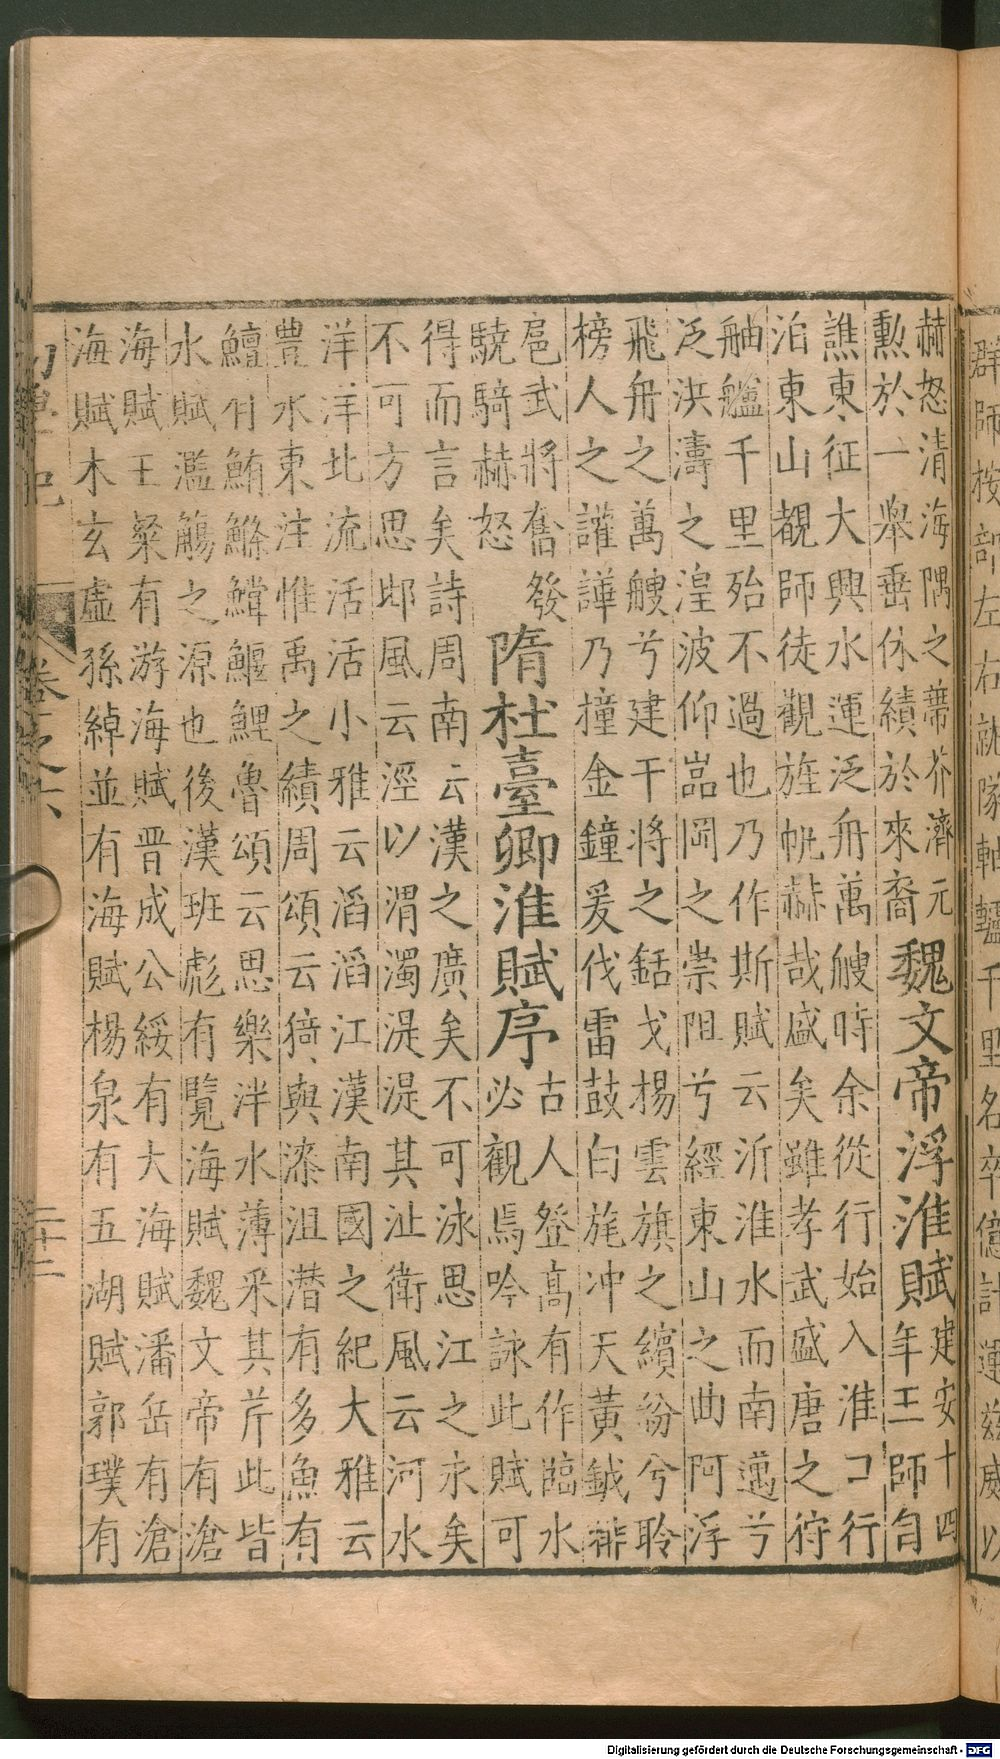 群師按部左右就隊軸轤千里名卒億計運茲威以
赫怒清海隅之蔕芥濟元
勲於一舉垂休績於來裔
魏文帝浮淮賦
建安十四
年王師自
譙東征大興水運泛舟萬艘時余從行始入淮口行
泊東山覩師徒觀旌帆赫哉盛矣雖孝武盛唐之狩
舳艫千里殆不過也乃作斯賦云泝淮水而南邁兮
泛洪濤之湟波仰嵓岡之崇阻兮經東山之曲阿浮
飛舟之萬艘兮建干将之銛戈楊雲旗之繽紛兮聆
榜人之讙譁乃撞金鐘爰伐雷鼓白旄冲天黄鉞裶
扈武將奮發
驍騎赫怒
隋杜臺卿淮賦序
古人登髙有作臨水
必觀焉吟詠此賦可
得而言矣詩周南云漢之廣矣不可泳思江之永矣
不可方思邶風云涇以渭濁湜湜其沚衛風云河水
洋洋北流活活小雅云滔滔江漢南國之紀大雅云
豊水東注惟禹之績周頌云猗與漆沮潜有多魚有
鱣有鮪鰷鱨鰋鯉魯頌云思樂泮水薄采其芹此皆
水賦濫觴之源也後漢班彪有覽海賦魏文帝有滄
海賦王粲有游海賦晋成公綏有大海賦潘岳有滄
海賦木玄虚孫綽並有海賦楊泉有五湖賦郭璞有
卷之六
二十二
Digitalisierung gefördert durch die Deutsche Forschungsgemeinschaft - DFG